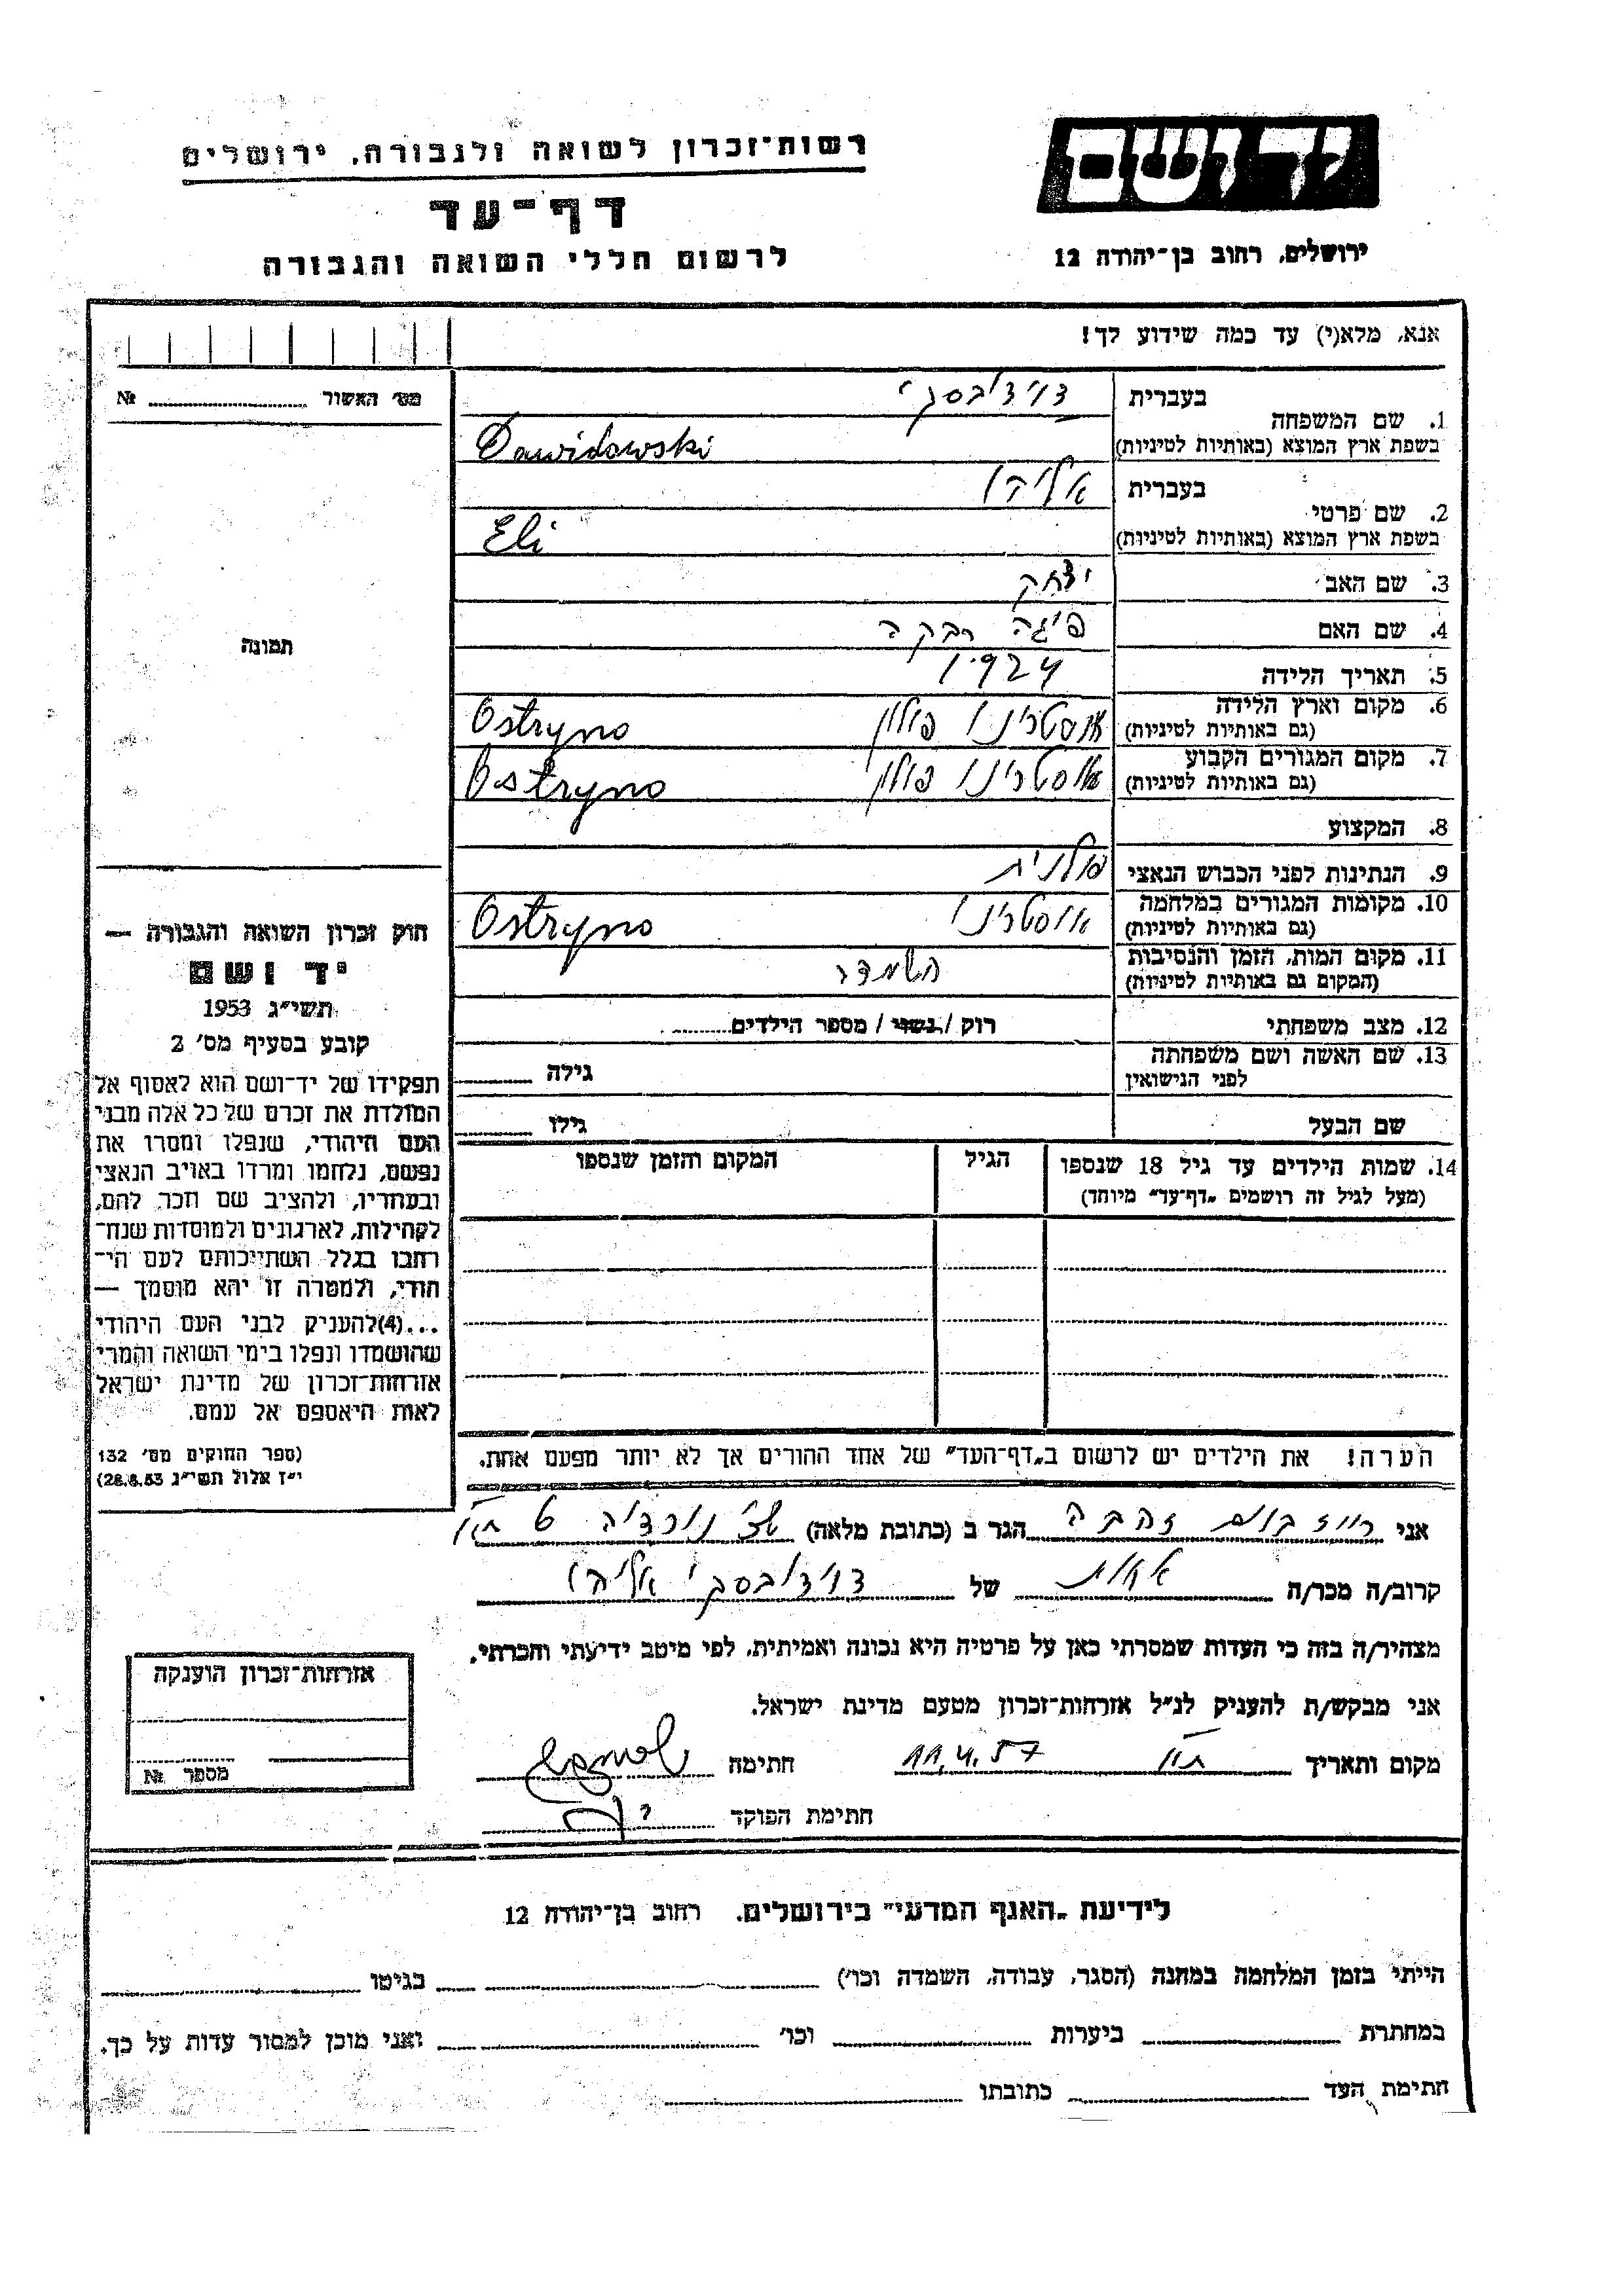 רשות־זכרון לשואה ולגבורה, ירושלים
דף־עד
לרשום חללי השואה והגבורה
יד ושם
ירושלים, רחוב בן־יהודה 12
אנא, מלא(י) עד כמה שידוע לך!
מס׳ האשור № 
תמונה
בעברית דוידובסקי
1. שם המשפחה
בשפת ארץ המוצא (באותיות לטיניות) Dawidowski
בעברית אליהו
2. שם פרטי
בשפת ארץ המוצא (באותיות לטיניות) Eli
3. שם האב יצחק
4. שם האם פיגה רבקה
5. תאריך הלידה 1924
6. מקום וארץ הלידה אוסטרינו פולין Ostryno
(גם באותיות לטיניות)
7. מקום המגורים הקבוע אוסטרינו פולין Ostryno
(גם באותיות לטיניות)
8. המקצוע
9. הנתינות לפני הכבוש הנאצי פולנית
10. מקומות המגורים במלחמה אוסטרינו Ostryno
(גם באותיות לטיניות)
11. מקום המות, הזמן והנסיבות השמדה
(המקום גם באותיות לטיניות)
12. מצב משפחתי רוק / נשוי / מספר הילדים
13. שם האשה ושם משפחתה
לפני הנישואין גילה
שם הבעל גילו
14. שמות הילדים עד גיל 18 שנספו הגיל המקום והזמן שנספו
(מעל לגיל זה רושמים „דף־עד״ מיוחד)
הערה! את הילדים יש לרשום ב„דף־העד״ של אחד ההורים אך לא יותר מפעם אחת.
חוק זכרון השואה והגבורה —
יד ושם
תשי״ג 1953
קובע בסעיף מס׳ 2
תפקידו של יד־ושם הוא לאסוף אל
המולדת את זכרם של כל אלה מבני
העם היהודי, שנפלו ומסרו את
נפשם, נלחמו ומרדו באויב הנאצי
ובעוזריו, ולהציב שם וזכר להם,
לקהילות, לארגונים ולמוסדות שנח־
רבו בגלל השתייכותם לעם הי־
הודי, ולמטרה זו יהא מוסמך —
...(4)להעניק לבני העם היהודי
שהושמדו ונפלו בימי השואה והמרי
אזרחות־זכרון של מדינת ישראל
לאות היאספם אל עמם.
(ספר החוקים מס׳ 132
י״ז אלול תשי״ג 28.8.53)
אני רוזנבוים זהבה הגר ב (כתובת מלאה) שכ׳ נורדיה 6 ת״א
קרוב/ה מכר/ה אחות של דוידובסקי אליהו
מצהיר/ה בזה כי העדות שמסרתי כאן על פרטיה היא נכונה ואמיתית, לפי מיטב ידיעתי והכרתי.
אני מבקש/ת להעניק לנ״ל אזרחות־זכרון מטעם מדינת ישראל.
מקום ותאריך ת״א 11.4.57 חתימה
חתימת הפוקד
אזרחות־זכרון הוענקה
מספר №
לידיעת „האגף המדעי״ בירושלים, רחוב בן־יהודה 12
הייתי בזמן המלחמה במחנה (הסגר, עבודה, השמדה וכו׳) בגיטו
במחתרת ביערות וכו׳ ואני מוכן למסור עדות על כך.
חתימת העד כתובתו